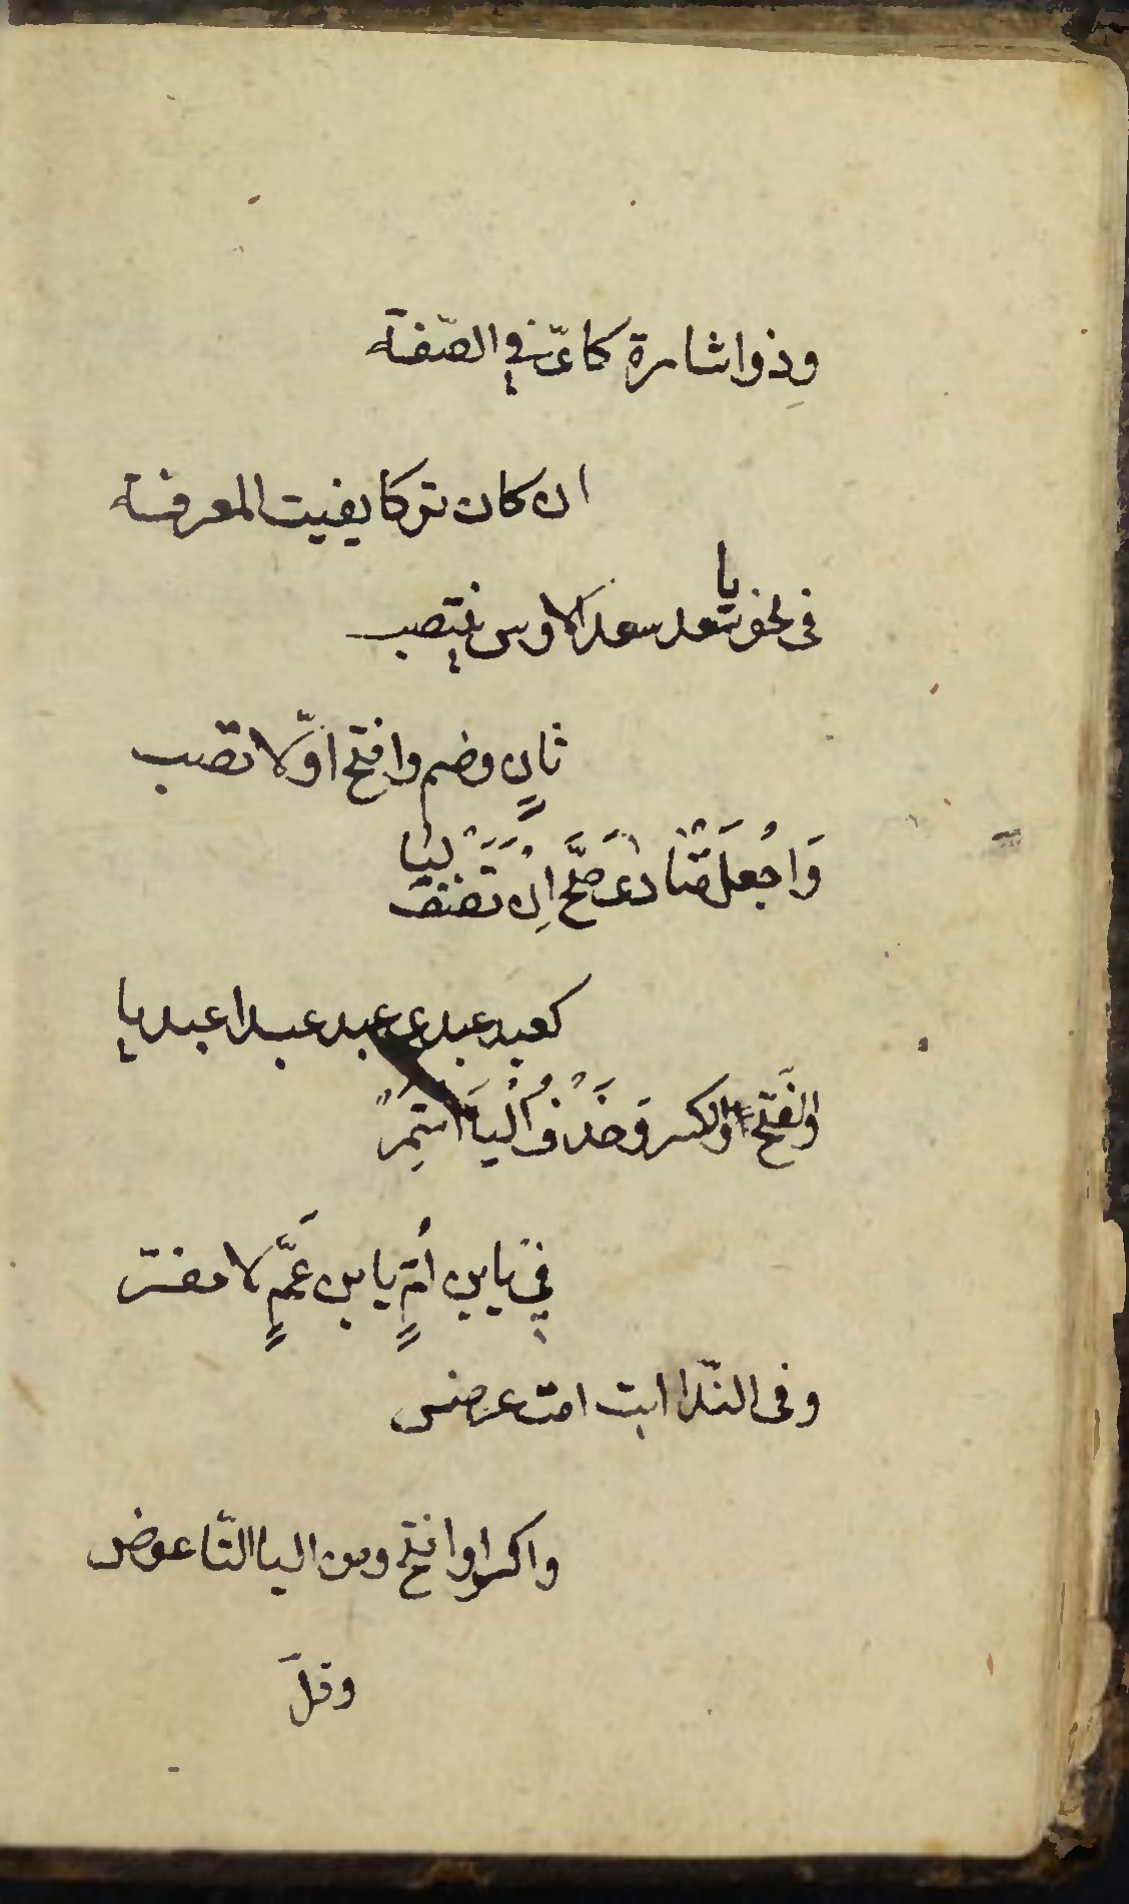 وذو اشارة كاىّ في الصّفة
ان كان تركها يفيت المعرفة
فى نحو يا سعد سعد الاوس ينتصب
ثانٍ وضم وافتح اوّلا تصب
وَاجْعَلْ مُنَادى صَحَّ اِنْ تُضَفْ لِيَا
كعبد عبدى عبد عبدا عبديا
والفَتْح والكسر وَحَذْفُ الْيَا استَمَرّ
في يا بن اُمٍّ يا بن عَمٍّ لا مفرّ
وفى النّدا ابت امت عرض
واكسر او افتح ومن اليا التّا عوض
وقلَ